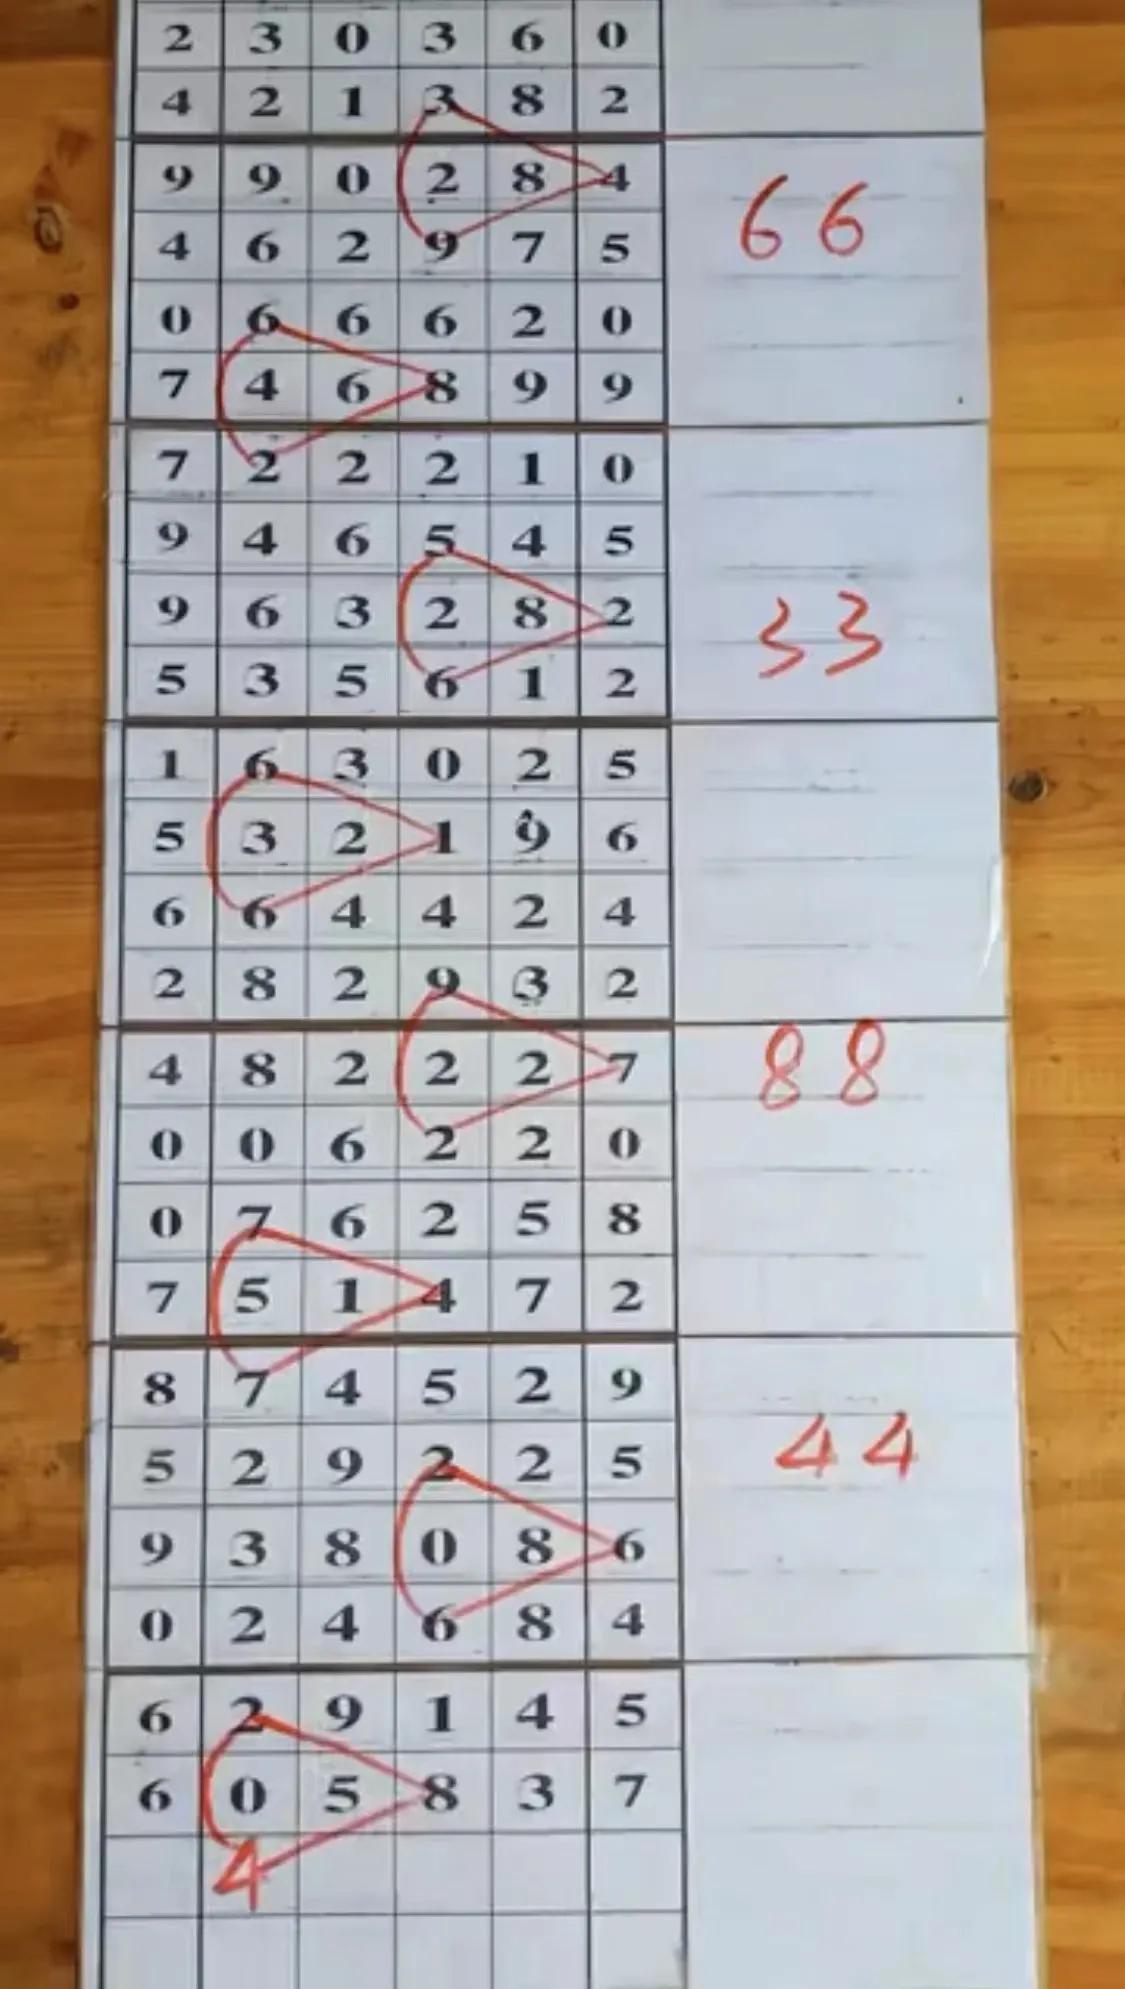 2 3 0 3 6 0
4 2 1 3 8 2
9 9 0 2 8 4
66
4 6 2 9 7 5
0 6 6 6 2 0
7 4 6 8 9 9
7 2 2 2 1 0
9 4 6 5 4 5
9 6 3 2 8 2
33
5 3 5 6 1 2
1 6 3 0 2 5
5 3 2 1 9 6
6 6 4 4 2 4
2 8 2 9 3 2
4 8 2 2 2 7
88
0 0 6 2 2 0
0 7 6 2 5 8
7 5 1 4 7 2
8 7 4 5 2 9
44
5 2 9 2 2 5
9 3 8 0 8 6
0 2 4 6 8 4
6 2 9 1 4 5
6 0 5 8 3 7
4